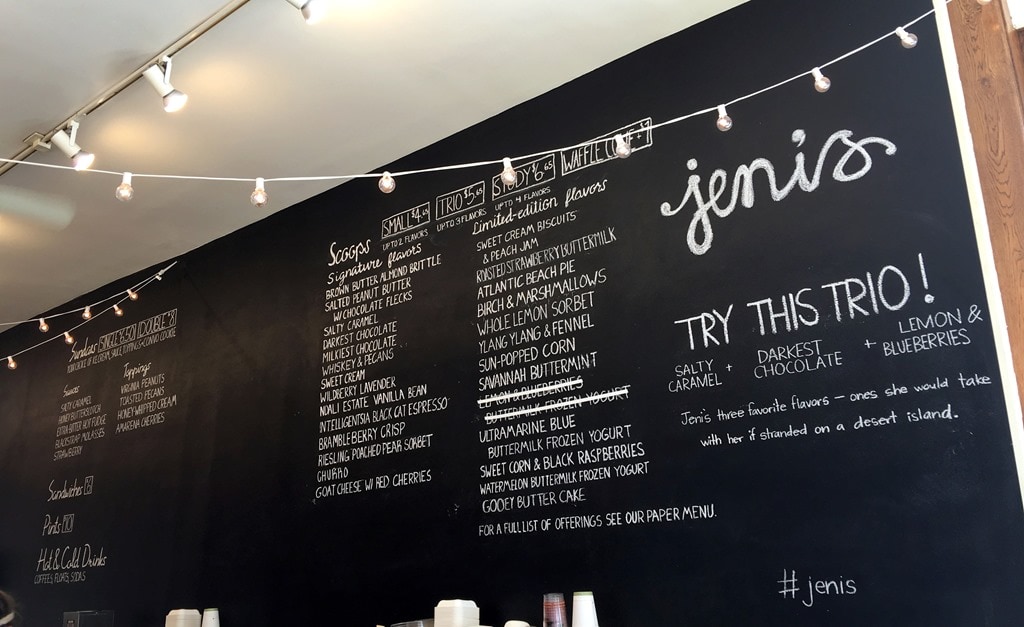 Sundaes SINGLE 8.50 DOUBLE
Sauces
SALTY CARAMEL
HONEY BUTTERSCOTCH
EXTRA BITTER HOT FUDGE
BLACKSTRAP MOLASSES
STRAWBERRY
Toppings
VIRGINIA PEANUTS
TOASTED PECANS
HONEY WHIPPED CREAM
AMARENA CHERRIES
Sandwiches
Pints
Hot & Cold Drinks
COFFEES, FLOATS, SODAS
SMALL $4.65 TRIO $5.65 STUDY $6.65 WAFFLE CONE + $1
UP TO 2 FLAVORS UP TO 3 FLAVORS UP TO 4 FLAVORS
Scoops
Signature flavors
BROWN BUTTER ALMOND BRITTLE
SALTED PEANUT BUTTER
W/ CHOCOLATE FLECKS
SALTY CARAMEL
DARKEST CHOCOLATE
MILKIEST CHOCOLATE
WHISKEY & PECANS
SWEET CREAM
WILDBERRY LAVENDER
NDALI ESTATE VANILLA BEAN
INTELLIGENTSIA BLACK CAT ESPRESSO
BRAMBLEBERRY CRISP
RIESLING POACHED PEAR SORBET
CHURRO
GOAT CHEESE W/ RED CHERRIES
Limited-edition flavors
SWEET CREAM BISCUITS
& PEACH JAM
ROASTED STRAWBERRY BUTTERMILK
ATLANTIC BEACH PIE
BIRCH & MARSHMALLOWS
WHOLE LEMON SORBET
YLANG YLANG & FENNEL
SUN-POPPED CORN
SAVANNAH BUTTERMINT
LEMON & BLUEBERRIES
BUTTERMILK FROZEN YOGURT
ULTRAMARINE BLUE
BUTTERMILK FROZEN YOGURT
SWEET CORN & BLACK RASPBERRIES
WATERMELON BUTTERMILK FROZEN YOGURT
GOOEY BUTTER CAKE
FOR A FULL LIST OF OFFERINGS SEE OUR PAPER MENU.
jenis
TRY THIS TRIO!
SALTY CARAMEL + DARKEST CHOCOLATE + LEMON & BLUEBERRIES
Jeni's three favorite flavors — ones she would take
with her if stranded on a desert island.
#jenis